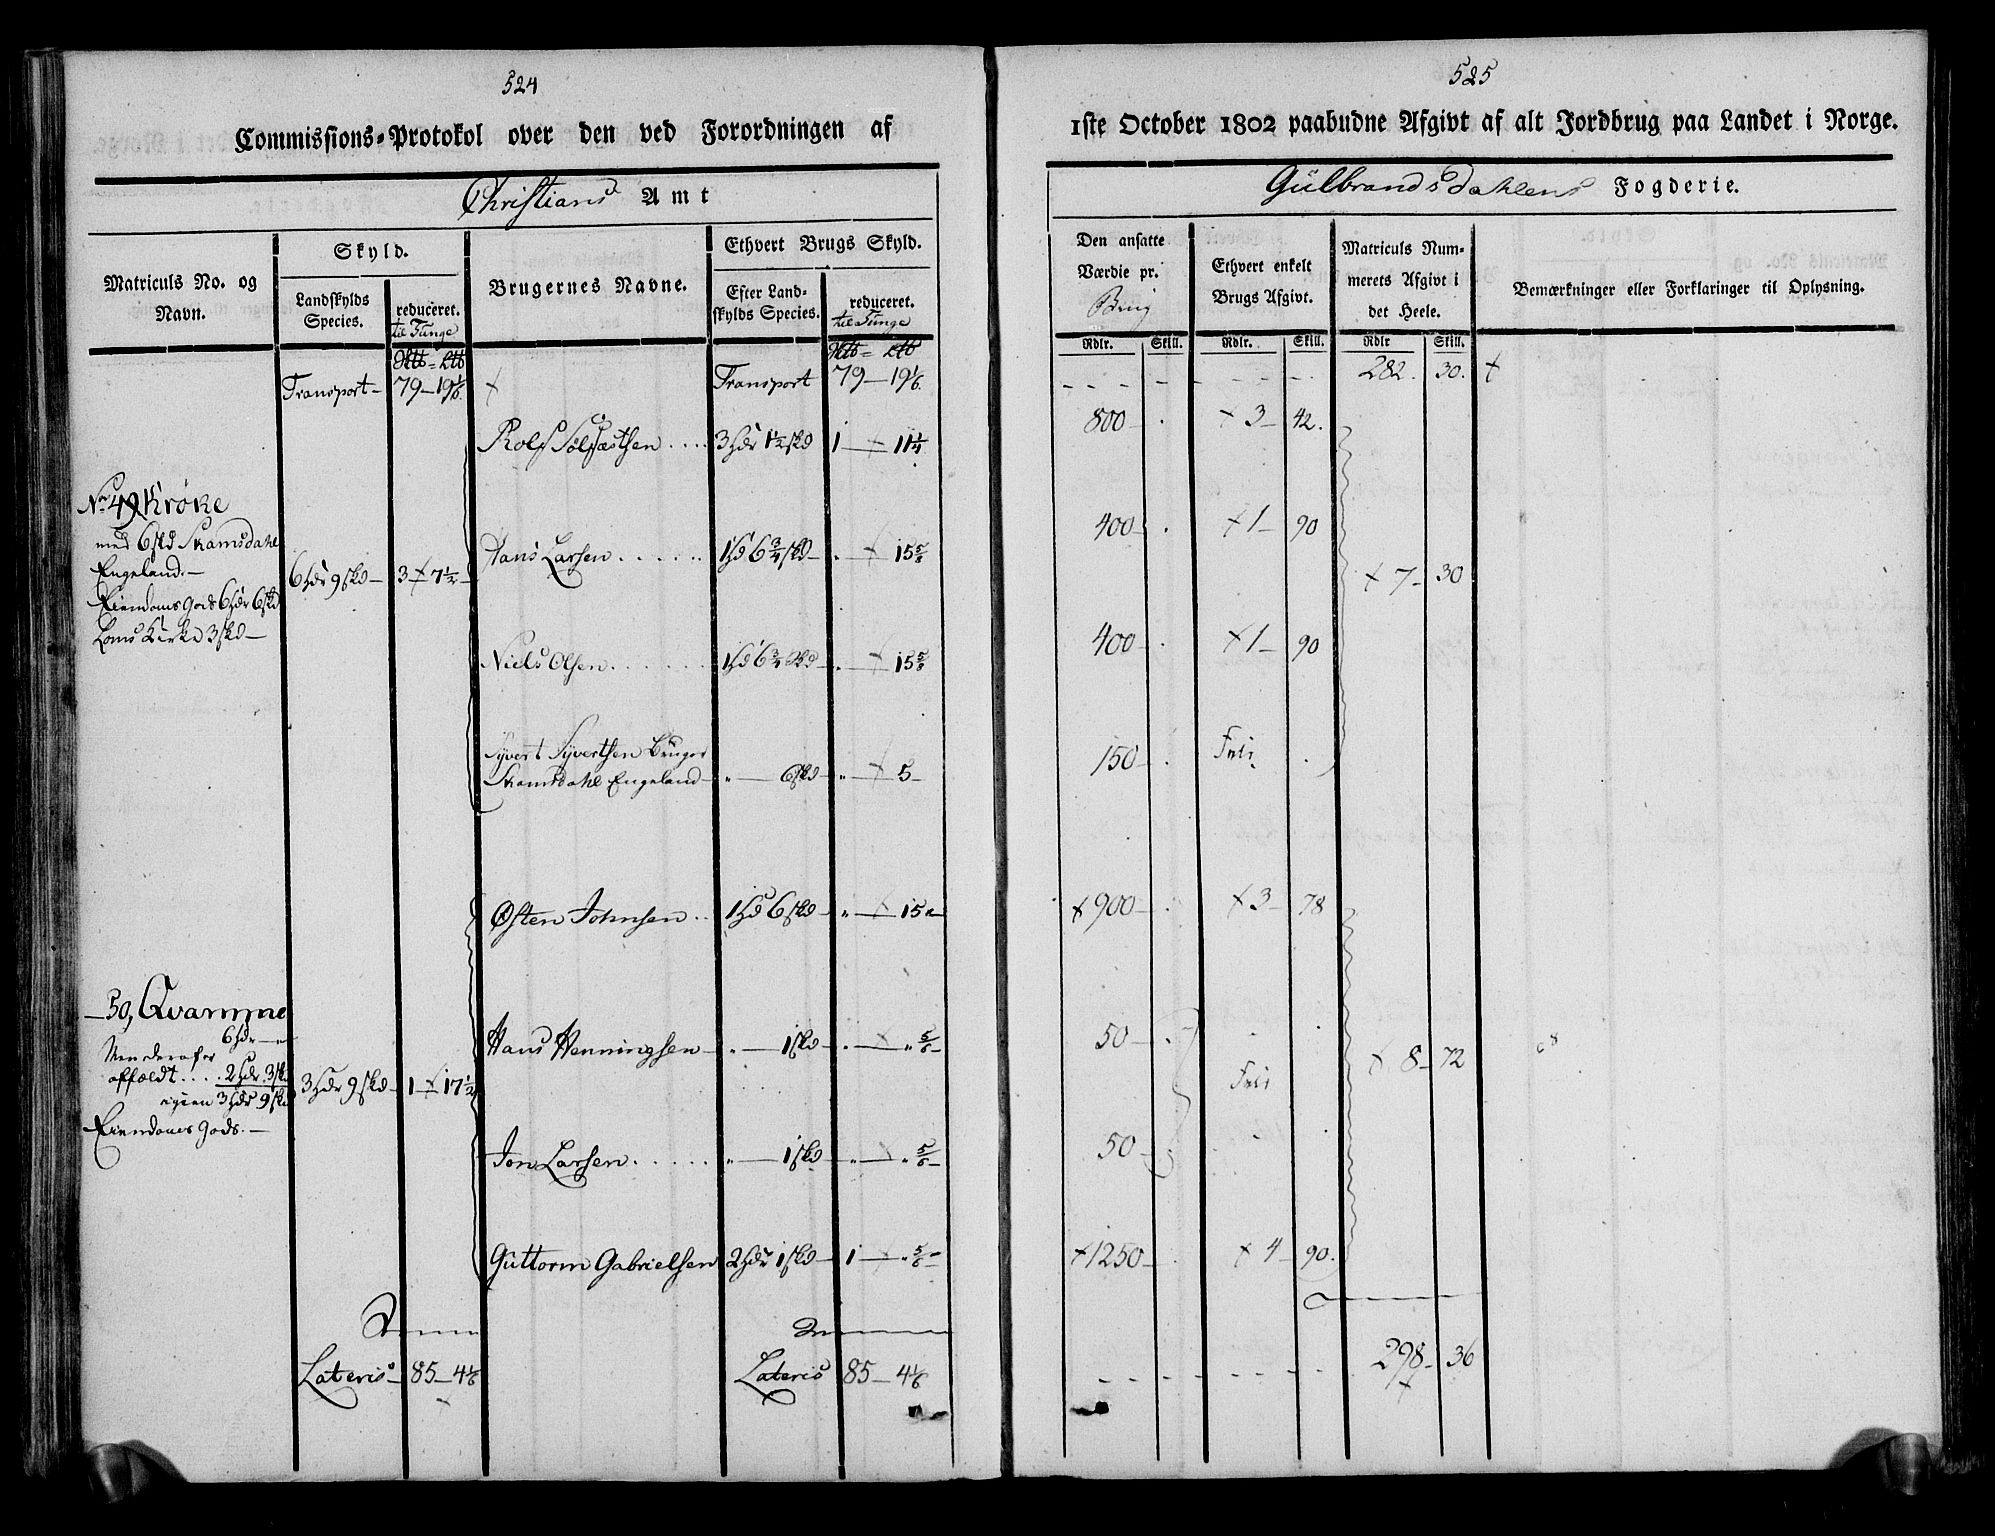 524
Commissions-Protokol over den ved Forordningen af
Christians Amt
Matriculs No. og Navn.
Skyld.
Landskylds Species.
reduceret. til Tunge
Brugernes Navne.
Ethvert Brugs Skyld.
Efter Landskylds Species.
reduceret. til Tunge
Transport 79 — 19 1/6 Transport 79 — 19 1/6
Rolf Sölfæstsen .... 3 Hdr 1 1/2 skd 1 — 11 1/4
No 49 Kröke
med 6 skd Skamsdahl
Engeland. —
Eiendoms Gods 6 Hdr 6 skd
Loms Kirke 3 skd —
6 Hdr 9 skd — 3 — 7 1/2
Hans Larsen ...... 1 Hd 6 3/4 skd — . — 15 5/8
Niels Olsen ...... 1 Hd 6 3/4 skd — . — 15 5/8
Syvert Syvertsen Bruger
Skamsdahl Engeland — " — 6 skd — " — 5 —
Østen Johnsen .. 1 Hd 6 skd — " — 15 "
— 50, Qvamme
6 Hdr — "
Men derafor
affældt .... 2 Hdr 3 skd
igien 3 Hdr 9 skd
Eiendoms Gods. —
3 Hdr 9 skd — 1 — 17 1/2
Hans Henningsen — " — 1 skd — . — " 5/6 —
Jon Larsen ...... " — 1 skd — " — " 5/6 —
Guttorm Gabrielsen 2 Hdr 1 skd — 1 — " 5/6 —
Lateris — 85 — 4 1/6 Lateris 85 — 4 1/6
525
1ste October 1802 paabudne Afgivt af alt Jordbrug paa Landet i Norge.
Gulbrandsdahlens Fogderie.
Den ansatte Værdie pr. Brug
Ethvert enkelt Brugs Afgivt.
Matriculs Nummerets Afgivt i det Heele.
Bemærkninger eller Forklaringer til Oplysning.
Rdlr. Skill. Rdlr. Skill. Rdlr Skill.
282. 30.
800 — . 3 — 42.
400 — . 1 — 90
7 — 30
400 — . 1 — 90
150 — . Frie .
900 — . 3 — 78
50 — .
Frie
8 — 72
50 — .
1250 — . 4 — 90.
298 — 36